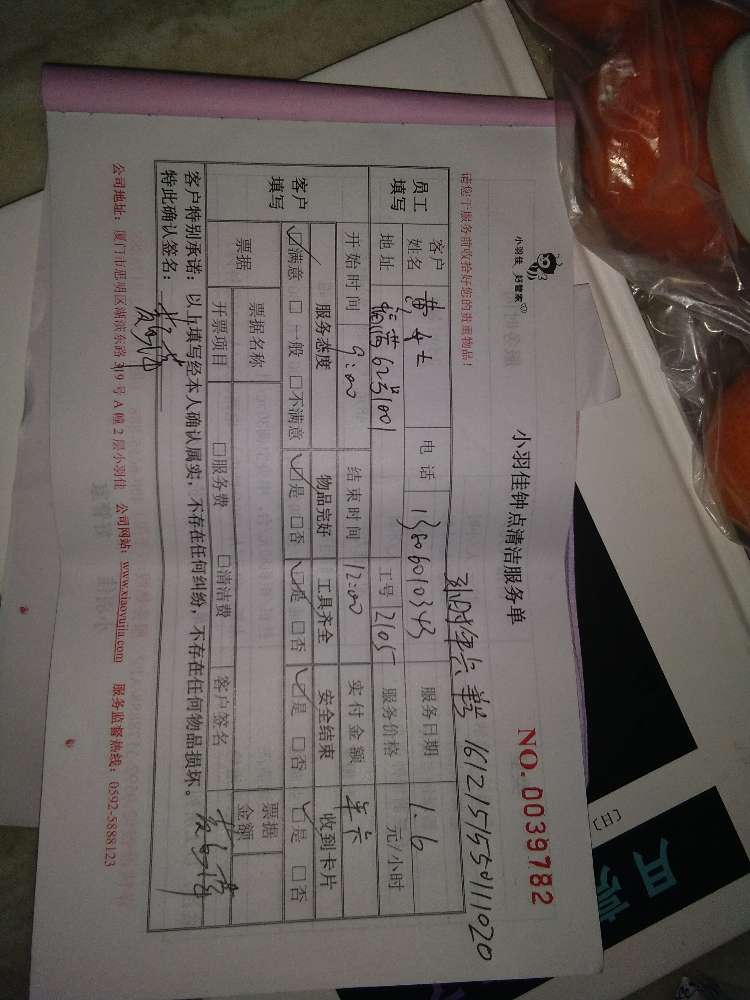 小羽佳 好管家
小羽佳钟点清洁服务单
NO. 0039782
请您于服务前收拾好您的贵重物品!
年卡 单号 1612151550111020
员工填写 客户姓名 黄女士 电话 13806010343 服务日期 1.6
地址 62号1001 工号 2105 服务价格 元/小时
开始时间 9:00 结束时间 12:00 实付金额 年卡
客户填写 服务态度 物品完好 工具齐全 安全结束 收到卡片
☑满意 □一般 □不满意 ☑是 □否 ☑是 □否 ☑是 □否 ☑是 □否
票据 票据名称 票据金额
开票项目 □服务费 □清洁费 客户签名
客户特别承诺:以上填写经本人确认属实,不存在任何纠纷,不存在任何物品损坏。
特此确认签名:
公司地址:厦门市思明区湖滨东路319号A幢2层小羽佳 公司网站:www.xiaoyujia.com 服务监督热线:0592-5888123